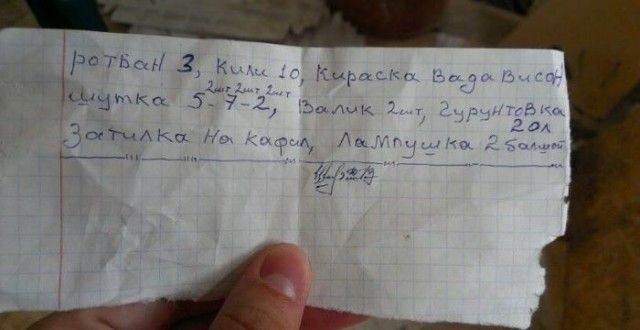 ротбан 3, кили 10, кираска вада висон
шутка 5-7-2, валик 2шт, гурунтовка
2шт 2шт 2шт
20л
Затилка на кафил, лампушка 2 балшой